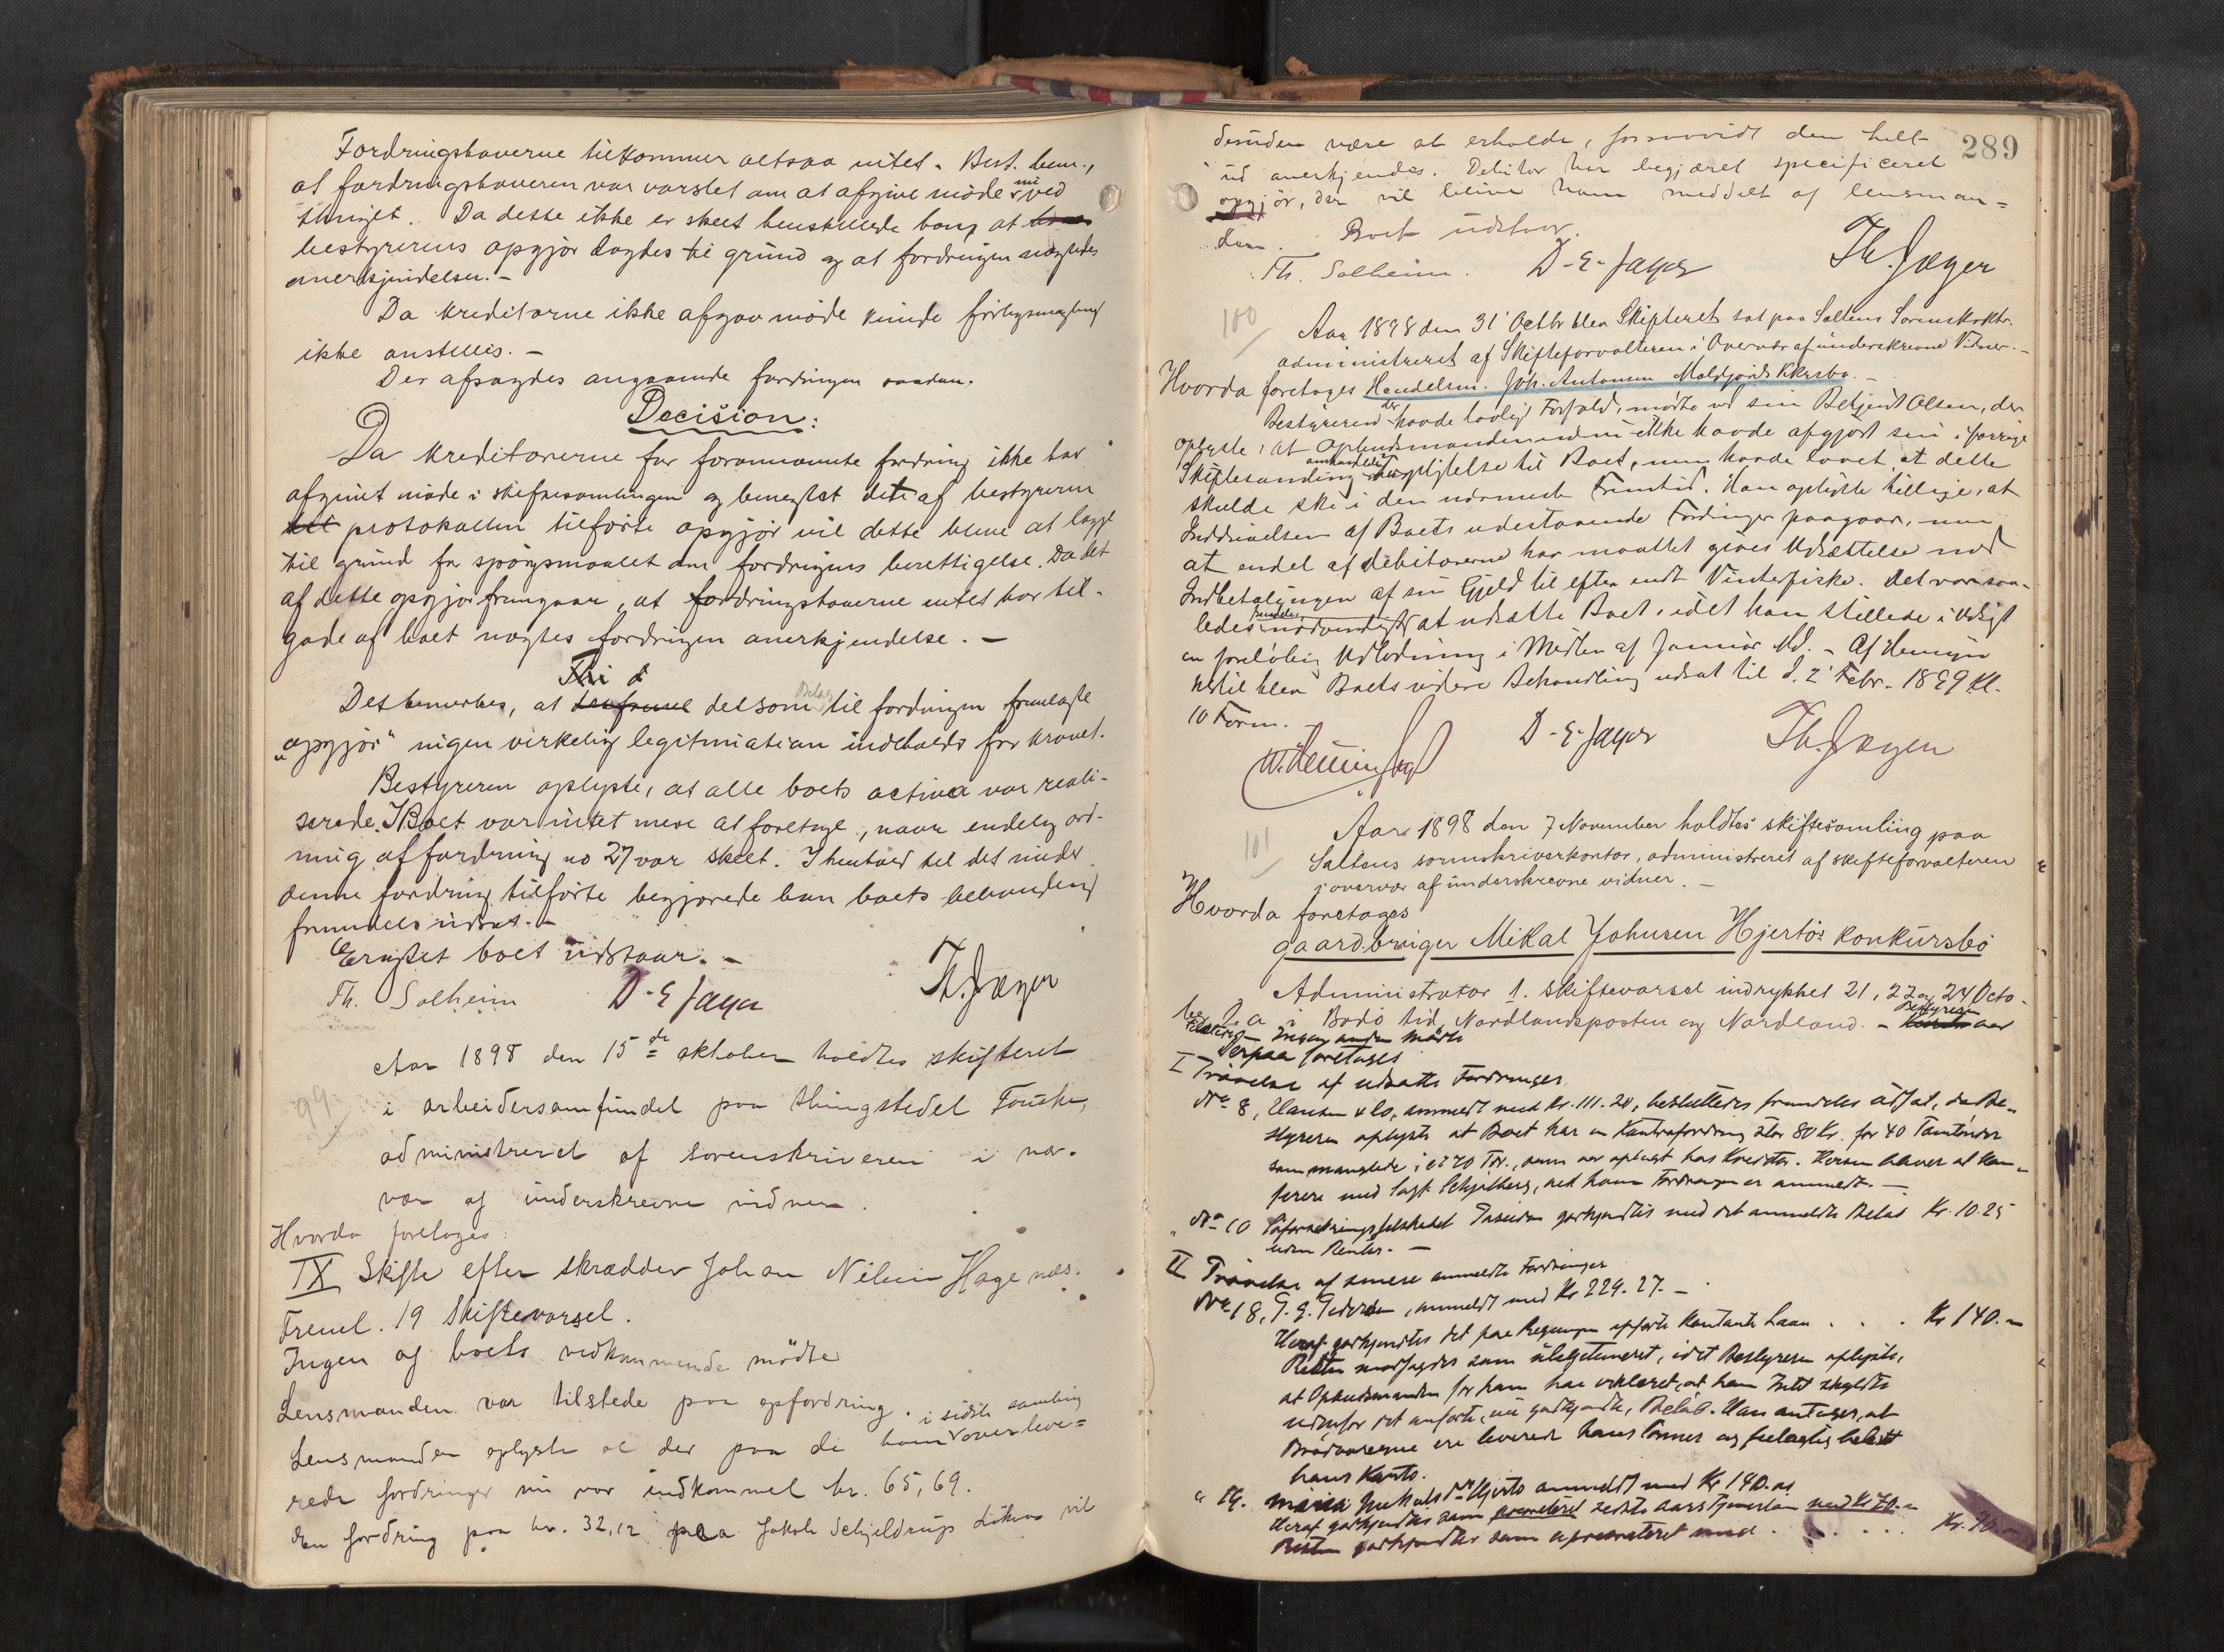 Fordringshaverne tilkommer altsaa intet. Best. bem.,
at fordringshaveren var varslet om at afgive møde nu ved
thinget. Da dette ikke er skeet henstillede han, at
bestyrerens opgjør lagdes til grund og at fordringen nægtedes
anerkjendelse. –
Da kreditorerne ikke afgav møde kunde forligsmægling
ikke anstilles. –
Der afsagdes angaaende fordringen saadan.
Decision:
Da kreditorerne for forannævnte fordring ikke har
afgivet møde i skiftesamlingen og benegtet det af bestyreren
til protokollen tilførte opgjør vil dette blive at lægge
til grund for spørgsmaalet om fordringens berettigelse. Da det
af dette opgjør fremgaar, at fordringshaverne intet har til-
gode af boet nægtes fordringen anerkjendelse. –
Thi d
Det bemerkes, at det som Bilag til fordringen fremlagte
"opgjør" ingen virkelig legitimation indeholdt for kravet.
Bestyreren oplyste, at alle boets activa var reali-
serede. I Boet var intet mere at foretage, naar endelig ord-
ning af fordring no 27 var skeet. I henhold til det under
denne fordring tilførte begjærede han boets behandling
fremdeles udsat. –
Eragtet boet udstaar. –
Th. Solheim D. E Jayer Th. Jæger
99
Aar 1898 den 15de oktober holdtes skifteret
i arbeidersamfundet paa thingstedet Fauske,
administreret af sorenskriveren i nær-
vær af underskrevne vidner.
Hvorda foretages:
IX Skifte efter skrædder Johan Nilsen Hagenæs.
Freml. 19 Skiftevarsel.
Ingen af boets vedkommende mødte
Lensmanden var tilstede paa opfordring.
Lensmanden oplyste at der paa de ham i sidste samling overleve=
rede fordringer nu var indkommet kr. 65,69.
En fordring paa kr. 32,12 paa Jakob Schjeldrup vil
289
desuden være at erholde, forsaavidt den helt
ud anerkjendes. Debitor har begjæret specificeret
opgjør, der vil blive ham meddelt af lensman=
den. Boet udstaar.
Th. Solheim. D. E. Jayer Th. Jæger
100
Aar 1898 den 31' Octbr blev Skifteret sat paa Saltens Sorenskrktr.
administreret af Skifteforvalteren i Overvær af underskrevne Vidner. –
Hvorda foretages Handelsm. Joh. Antonsen Maldfjords Kkrsbo. –
Bestyreren der havde lovligt Forfald, mødte ved sin Betjent Olsen, der
oplyste, at Opbudsmanden endnu ikke havde afgjort sin i forrige
Skiftesamling omhandlede Forpligtelse til Boet, men havde lovet, at dette
skulde ske i den nærmeste Fremtid. Han oplyste tillige, at
Inddrivelsen af Boets udestaaende Fordringer paagaar, men
at endel af debitorerne har maattet gives Udsættelse med
Indbetalingen af sin Gjæld til efter endt Vinterfiske. Det var saa-
ledes nødvendigt at udsætte Boet, idet han stillede i Udsigt
en foreløbig Udlodning i Midten af Januar Md. – Af Hensyn
hertil blev Boets videre Behandling udsat til d. 2' Febr. 1899 Kl.
10 Form. –
D. E. Jayer Th. Jæger
101
Aar 1898 den 7 November holdtes skiftesamling paa
Saltens sorenskriverkontor, administreret af skifteforvalteren
i overvær af underskrevne vidner. –
Hvorda foretages
gaardbruger Mikal Johnsen Hjertøs konkursbo
Administrator 1. skiftevarsel indrykket 21, 22 og 24 Octo-
ber d. a i Bodø tid, Nordlandsposten og Nordland. – Bestyreren var
tilstede. – Ingen anden mødte
Derpaa foretages
I Prøvelse af udsatte Fordringer
No 8, Hansen & Co, anmeldt med Kr. 111.20, besluttedes fremdeles udsat, da Be-
styreren oplyste at Boet har en Kontrafordring stor 80 Kr. for 40 Tomtønder
som manglede i et 70 Tdr., som var oplagt hos Kreditor. Herom bliver at kon-
ferere med Sagf. Schjelberg, ved hvem Fordringen er anmeldt. –
" No 10 Søforsikringsselskabet Poseidon godkjendtes med det anmeldte Beløb Kr. 10.25
uden Renter. –
II Prøvelse af senere anmeldte Fordringer
No 18, P. G. Pedersen, anmeldt med Kr 229.27. –
Heraf godkjendtes det paa Regningen opførte kontante Laan . . . Kr 140.–
Resten modsagdes som ulegitimeret, idet Bestyreren oplyste,
at Opbudsmanden for ham har erklæret, at han Intet skyldte
udenfor det anførte, nu godkjendte, Beløb. Han antager, at
Brødvarerne ere leverede hans Sønner og feilagtig belastet
hans Konto.
" 19. Maria Mikals Dtr Hjertø anmeldt med Kr 140.00
Heraf godkjendtes som prioriteret sidste aars Tjenesteløn med Kr 70.–
Resten godkjendtes som uprioriteret med . . . . . Kr. 70.–